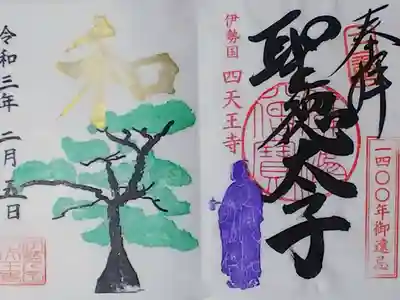 奉拝
一四〇〇年御遠忌
聖徳太子
伊勢国 四天王寺
和
令和三年 二月五日